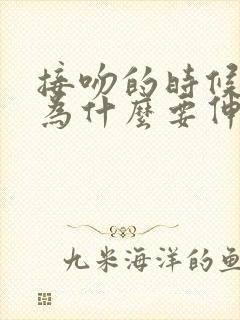 接吻的時候
為什麼要伸
九米海洋的魚